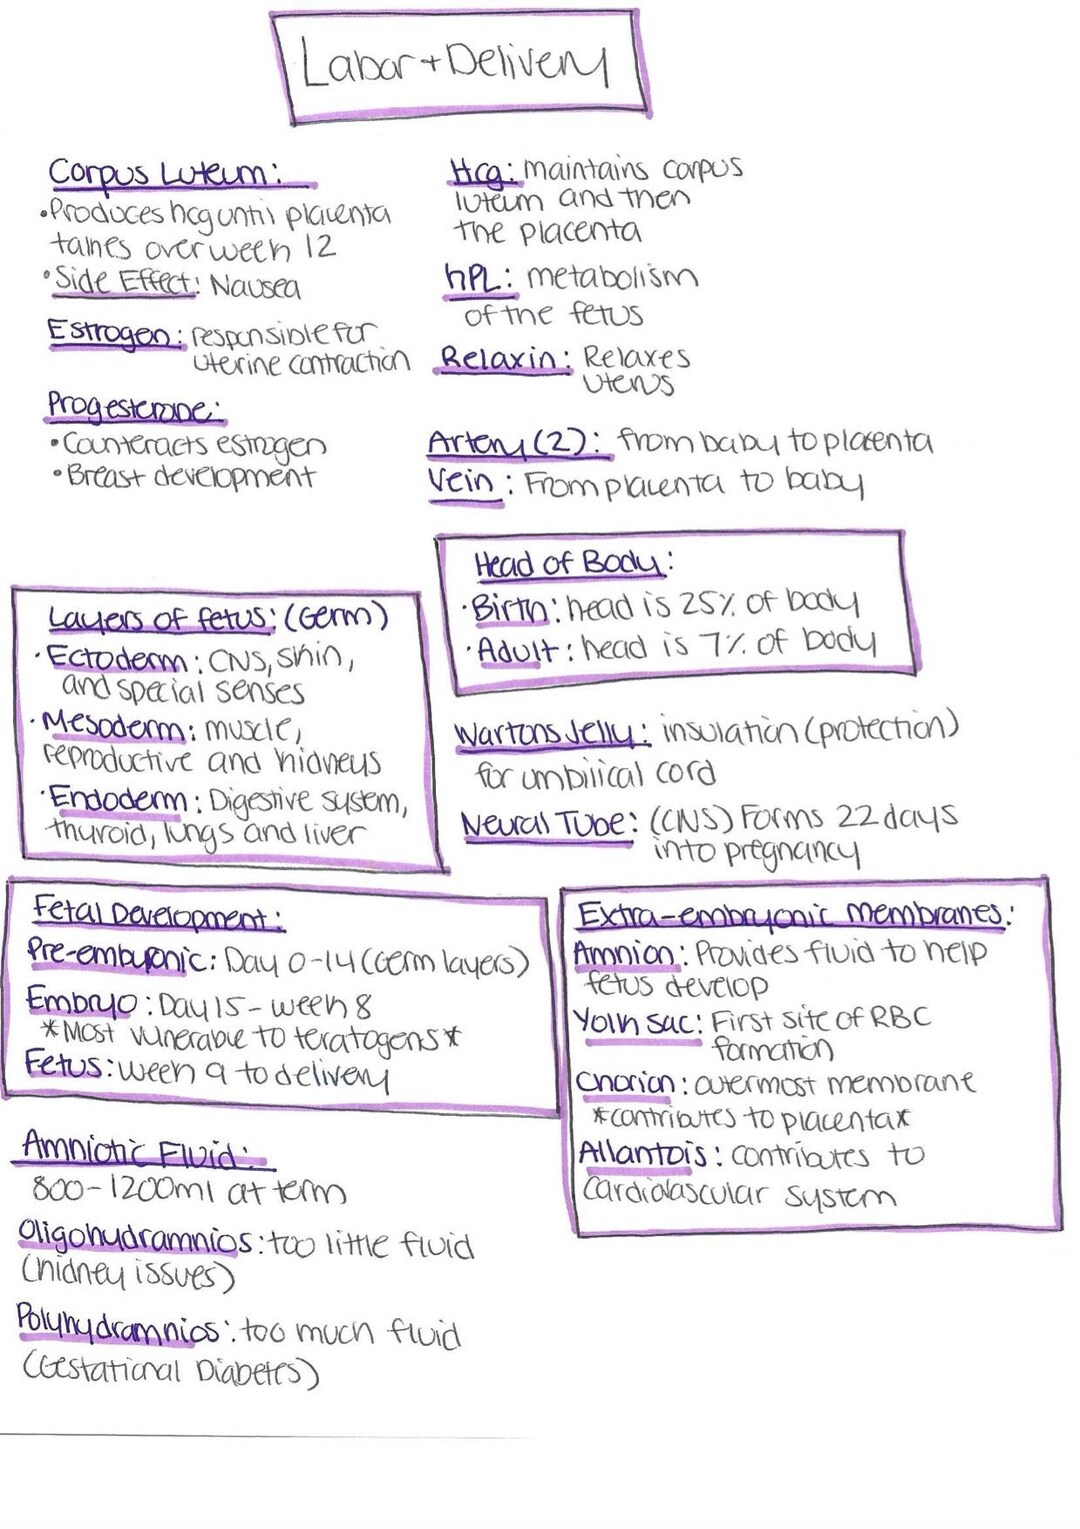 Labor + Delivery
Corpus Luteum:
•Produces hcg until placenta
takes over week 12
•Side Effect: Nausea
Estrogen: responsible for
uterine contraction
Progesterone:
•Counteracts estrogen
•Breast development
Hcg: maintains corpus
luteum and then
the placenta
hPL: metabolism
of the fetus
Relaxin: Relaxes
uterus
Artery (2): from baby to placenta
Vein: From placenta to baby
Head of Body:
•Birth: head is 25% of body
•Adult: head is 7% of body
Layers of fetus: (Germ)
•Ectoderm: CNS, skin,
and special senses
•Mesoderm: muscle,
reproductive and kidneys
•Endoderm: Digestive system,
thyroid, lungs and liver
Wartons Jelly: insulation (protection)
for umbilical cord
Neural Tube: (CNS) Forms 22 days
into pregnancy
Fetal Development:
Pre-embryonic: Day 0-14 (Germ layers)
Embryo: Day 15 - week 8
*Most vulnerable to teratogens*
Fetus: week 9 to delivery
Extra-embryonic membranes:
Amnion: Provides fluid to help
fetus develop
Yolk sac: First site of RBC
formation
Chorion: outermost membrane
*contributes to placenta*
Allantois: contributes to
cardiovascular system
Amniotic Fluid:
800-1200ml at term
Oligohydramnios: too little fluid
(kidney issues)
Polyhydramnios: too much fluid
(Gestational Diabetes)